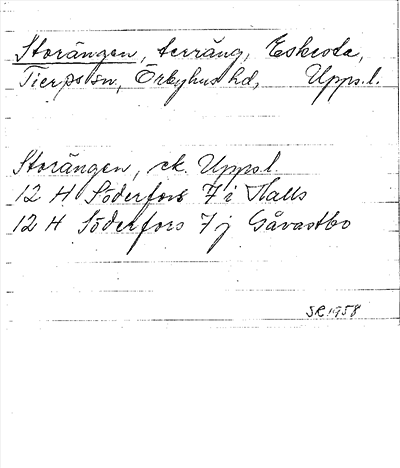 Storängen, terräng, Eskesta,
Tierps sn, Örbyhus hd, Upps.l.
Storängen, ek. Upps.l.
12 H Söderfors 7 i Halls
12 H Söderfors 7 j Gåvastbo
SR 1958